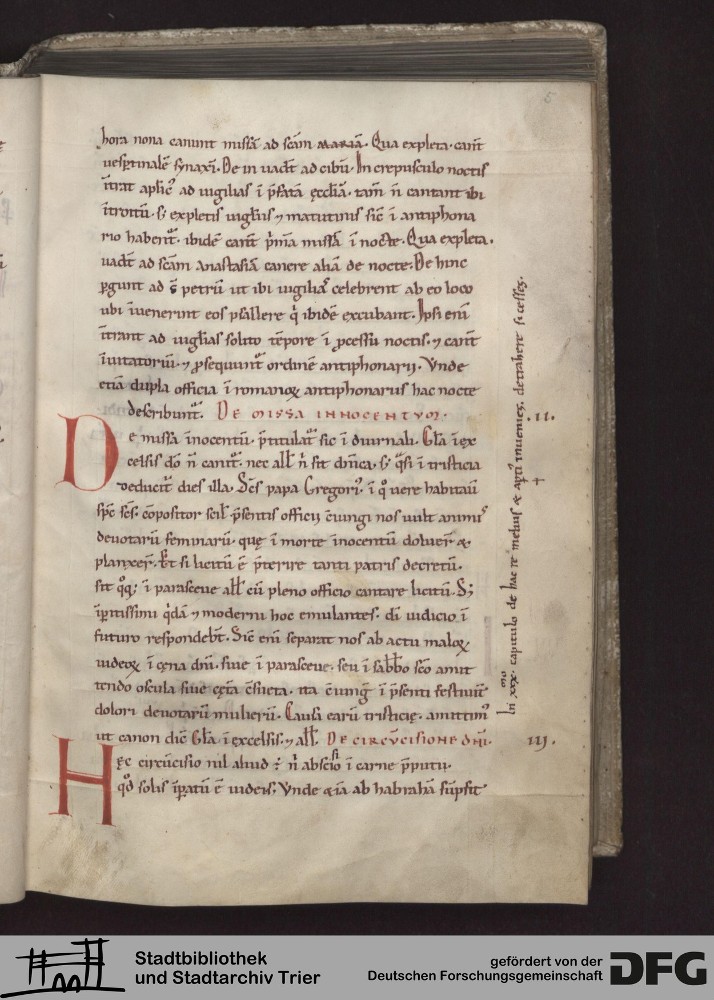 5
hora nona canunt missā ad scām mariā. Qua expleta. canūt
uesptinalē synaxī. De in uadūt ad cibū. In crepusculo noctis
ītrat aplic᾽ ad uigilias ī p̄fatā ęcclīā. tam̄ n̄ cantant ibi
ītroitū. s; expletis uigiliis ⁊ matutinis sic̄ ī antiphona
rio habent᷑. ibidē canūt p̄mā missā ī nocte. Qua expleta.
uadūt ad scām Anastasiā canere aliā de nocte. De hinc
pgunt ad s̄ petrū ut ibi uigilias celebrent ab eo loco
ubi īuenerint eos psallere q̄ ibidē excubant. Ipsi enī
ītrant ad uigłias solito tēpore ī p̄cessu noctis. ⁊ canūt
īuitatoriū. ⁊ psequunt᷑ ordinē antiphonarii. Vnde
etiā dupla officia ī romanoꝝ antiphonariis hac nocte
describunt᷑. DE MISSA INNOCENTVM.
.II.
De missa īnocentū. p̄titulat᷑ sic ī diurnali. Gła ī ex
celsis dō n̄ canit᷑. nec ałł n̄ sit dn̄ica. s; q̄si ī tristicia
deducit᷑ dies illa. Scs papa Gregori᾽. ī q̊ uere habitau̅
spc̄ scs. cōpositor scił p̄sentis officii cōiungi nos uult animis
deuotarū feminarū. quę ī morte īnocentū doluer̄ &
planxer̄. Et si licitū ē p̄terire tanti patris decretū.
sit q̊q; ī parasceue ałł cū pleno officio cantare licitū. S;
īpitissimi q̄dā ⁊ moderni hoc emulantes. dī iudicio ī
futuro respondeb̄t. Sic̄ enī separat nos ab actu maloꝝ
iudeoꝝ ī cęna dn̄i. siue ī parasceue. seu ī sabb̄o sc̄o amit
tendo oscula siue cęta c̄sueta. ita cōiung̅ ī p̄senti festiuit̄
dolori deuotarū mulierū. Causa earū tristicię. amittim᾽
ut canon dic̄ Gła ī excelsis. ⁊ ałł. DE CIRCVCISIONE DN̄I.
.III.
Hęc circūcisio nil aliud ē n̄ abscisio ī carne p̄putii.
Qd̄ solis īpatū ē iudeis; Vnde &iā ab habrahā sūpsit
In xxx.mo capitulo de hac re melius & apti᾽ inuenies. dettabert᷑ s.cesses.
Stadtbibliothek
und Stadtarchiv Trier
gefördert von der
Deutschen Forschungsgemeinschaft
DFG